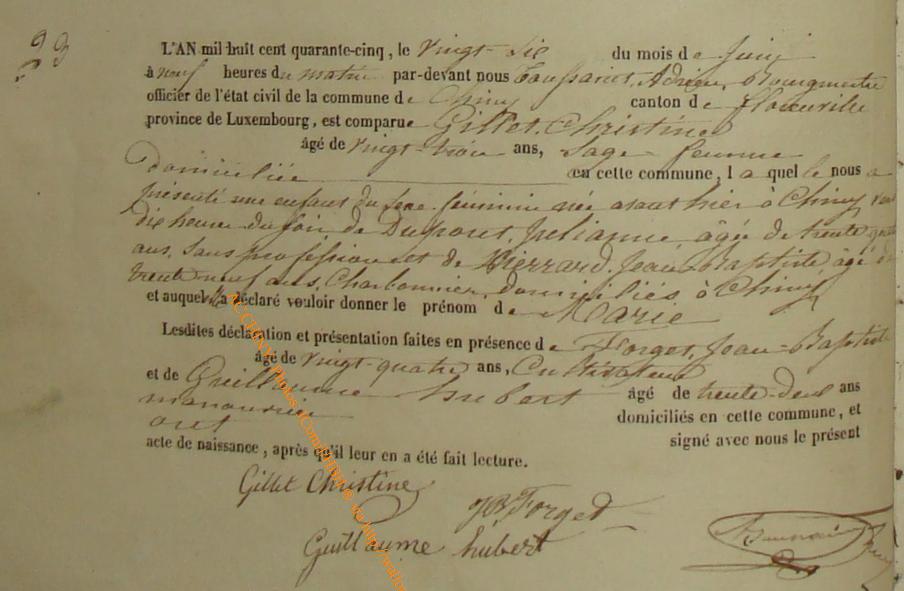 99
L'AN mil huit cent quarante-cinq, le vingt six du mois de Juin
à neuf heures du matin par-devant nous Toussaint, Adrien,
officier de l'état civil de la commune de Chiny canton de Florenville
province de Luxembourg, est comparue Gillet, Christine
âgé de vingt-trois ans, Sage femme
domiciliée en cette commune, laquelle nous a
présenté une enfant du sexe féminin née avant hier à Chiny vers
dix heures du soir de Dupont, Julianne, âgée de trente quatre
ans, sans profession et de Pierrard, Jean-Baptiste âgé de
trente neuf ans, Charbonnier, domiciliés à Chiny
et auquel a déclaré vouloir donner le prénom de Marie
Lesdites déclaration et présentation faites en présence de Forget, Jean-Baptiste
âgé de vingt-quatre ans, Cultivateur
et de Guillaume hubert âgé de trente-deux ans
manouvrier domiciliés en cette commune, et
ont signé avec nous le présent
acte de naissance, après qu'il leur en a été fait lecture.
Gillet Christine
JB Forget
Guillaume hubert